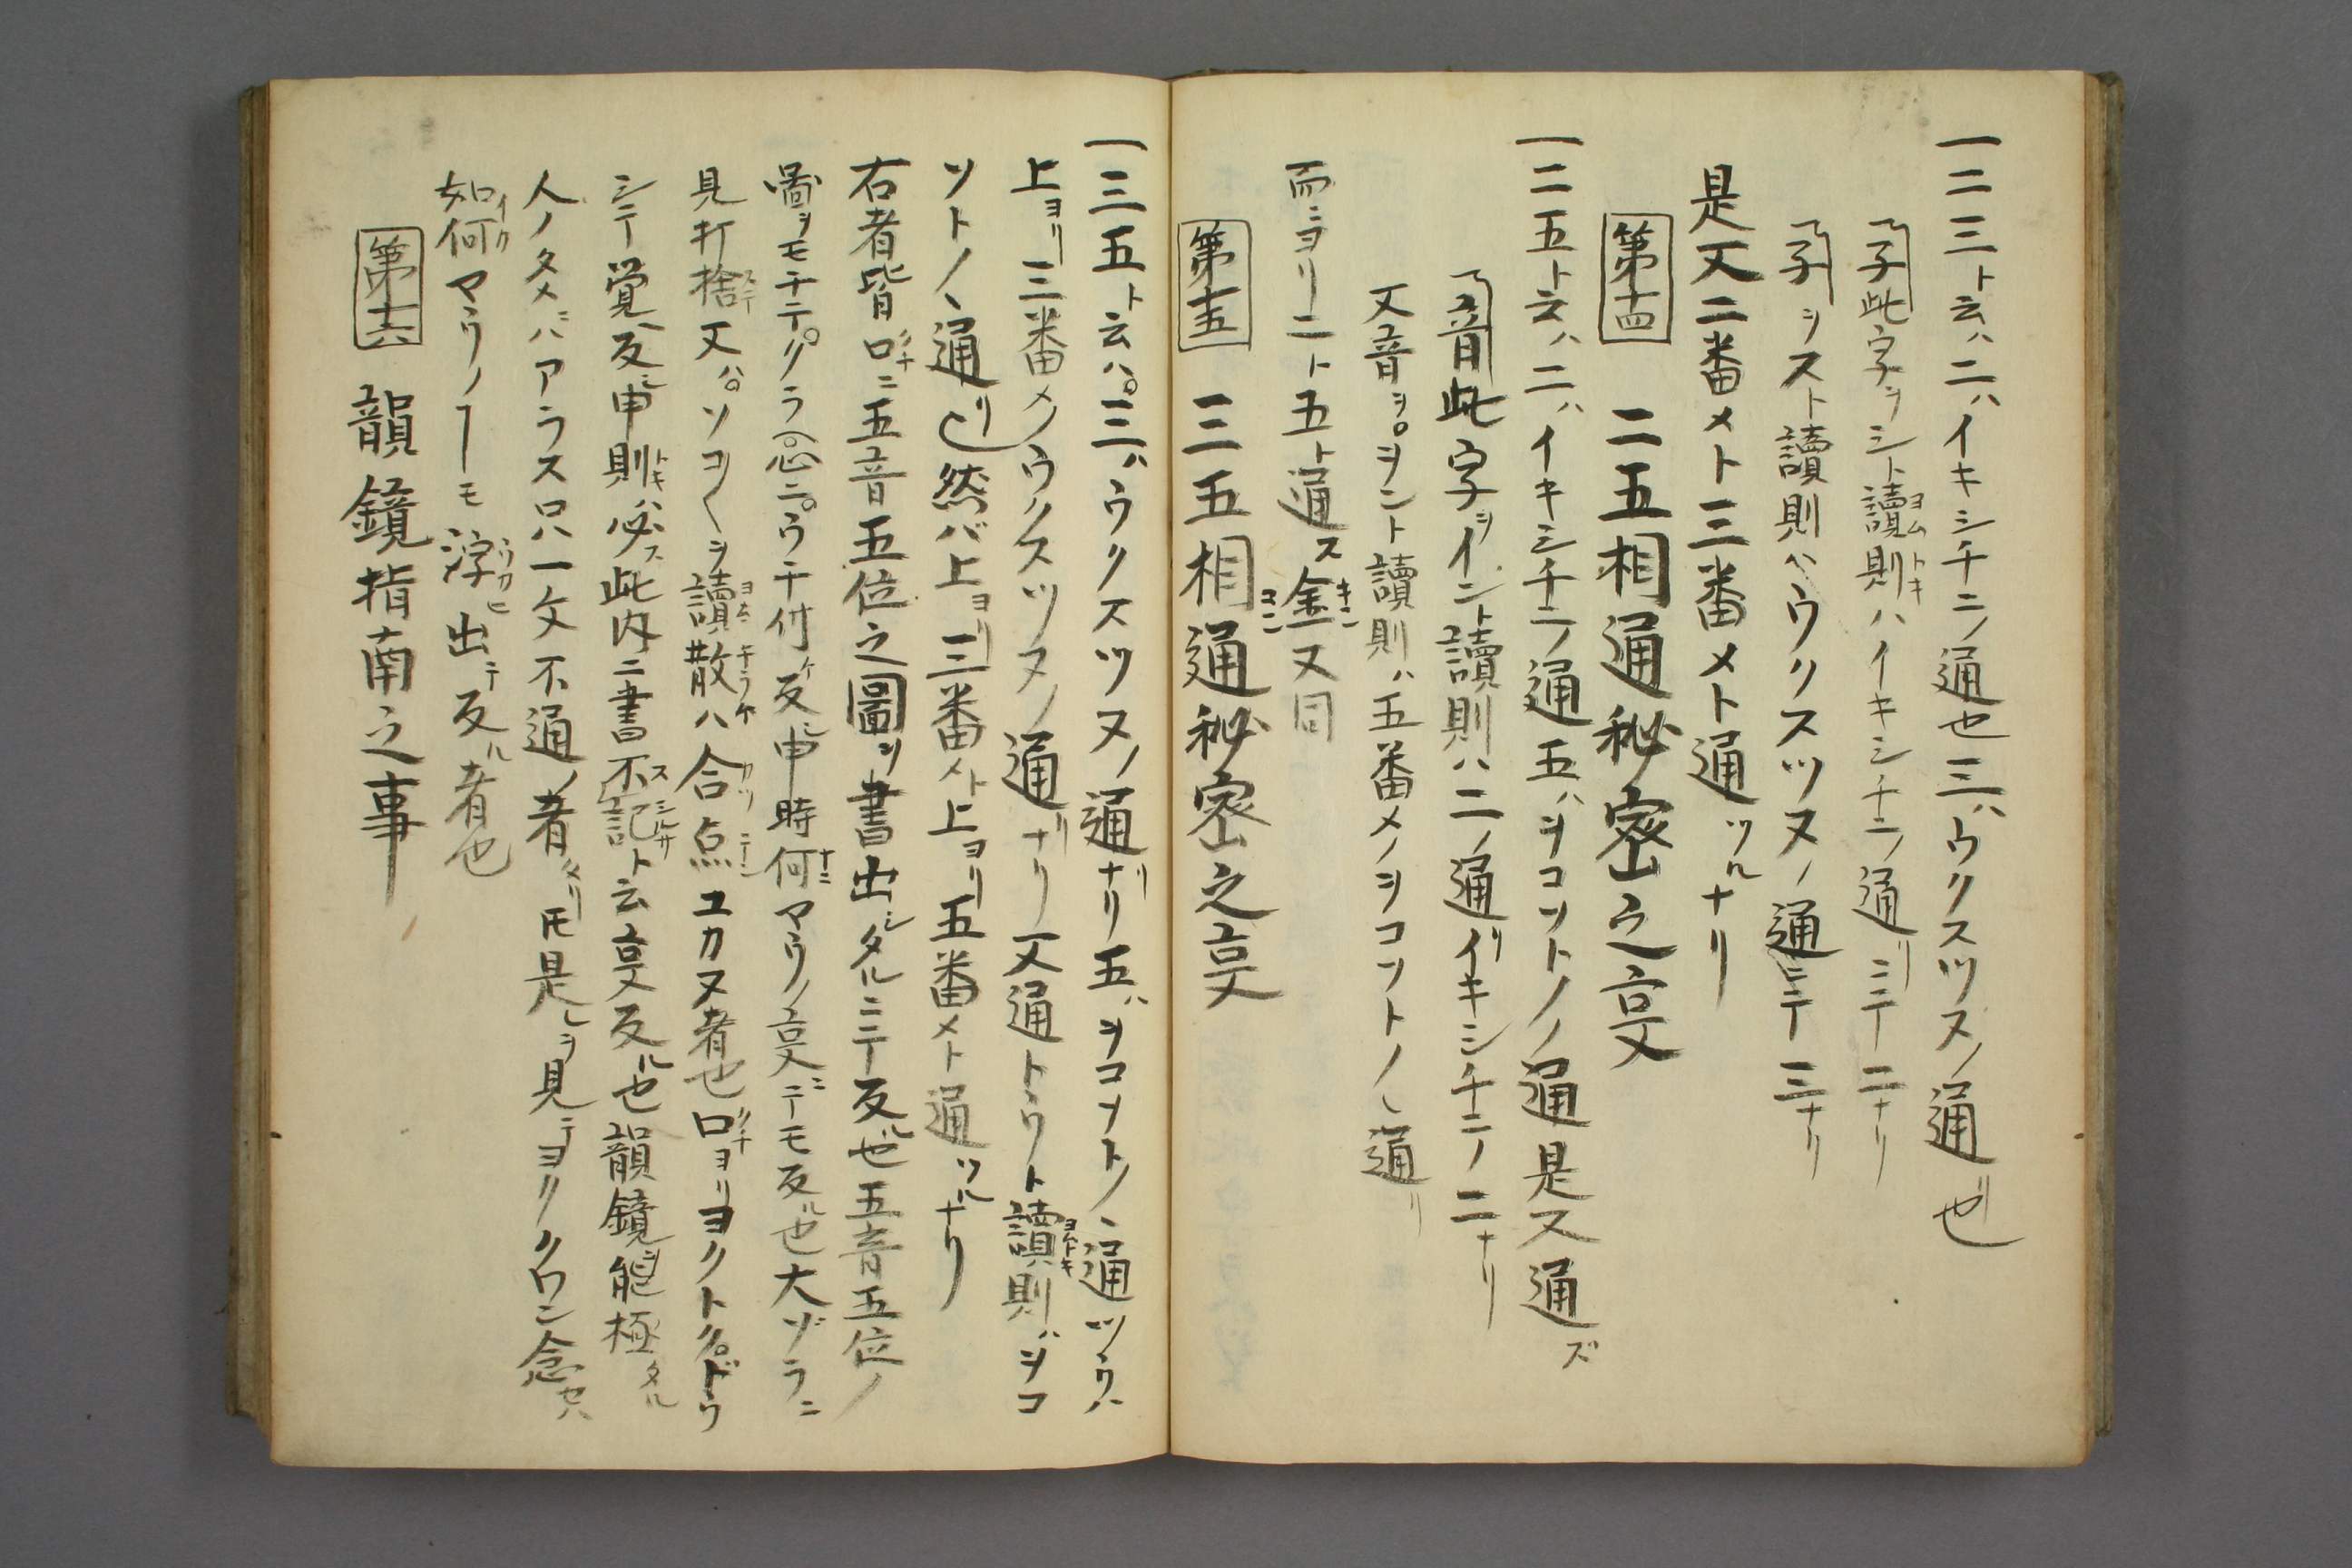 一二三ト云ハ二ハイキシチニノ通也三ハウクスツヌノ通也
子此字ヲシト讀則ハイキシチニノ通リニテ二ナリ
子ヲスト讀則ハウクスツヌノ通ニテ三ナリ
是又二番メト三番メト通ツルナリ
第十四 二五相通秘密之叓
一二五ト云ハ二ハイキシチニノ通五ハヲコソトノノ通是又通ズ
音此字ヲイント讀則ハ二ノ通リイキシチニノ二ナリ
又音ヲ。ヲント讀則ハ五番メノヲコソトノノ通リ
而ニヨリ二ト五ト通ス金又同
第十五 三五相通秘密之叓
一三五ト云ハ。三ハウクスツヌノ通ナリ五ハヲコソトノノ通ツウハ
上ヨリ三番メノウクスツヌノ通ナリ又通トウト讀則ハヲコ
ソトノノ通リ也然バ上ヨリ三番メト上ヨリ五番メト通ツルナリ
右者皆口ニ五音五位之圖ヲ書出シタルニテ反ル也五音五位ノ
圖ヲモチテ。クラ。忘ニ。ウチ付ケ反シ申時何マウノ叓ニテモ反ル也大ゾラニ
見打捨又ハ。ソコ〱ヲ讀散ハ合点ユカヌ者也口ヨリヨクトクドウ
シテ覚ヘ反シ申則ハ必ス此内ニ書不記ト云叓反ル也韻鏡ヲ能極タル
人ノタメニバアラス只一文不通ノ者タリ𪜈是レヲ見テヨククワン念セハ
如何マウノヿモ浮出テ反ル者也
第十六 韻鏡指南之事